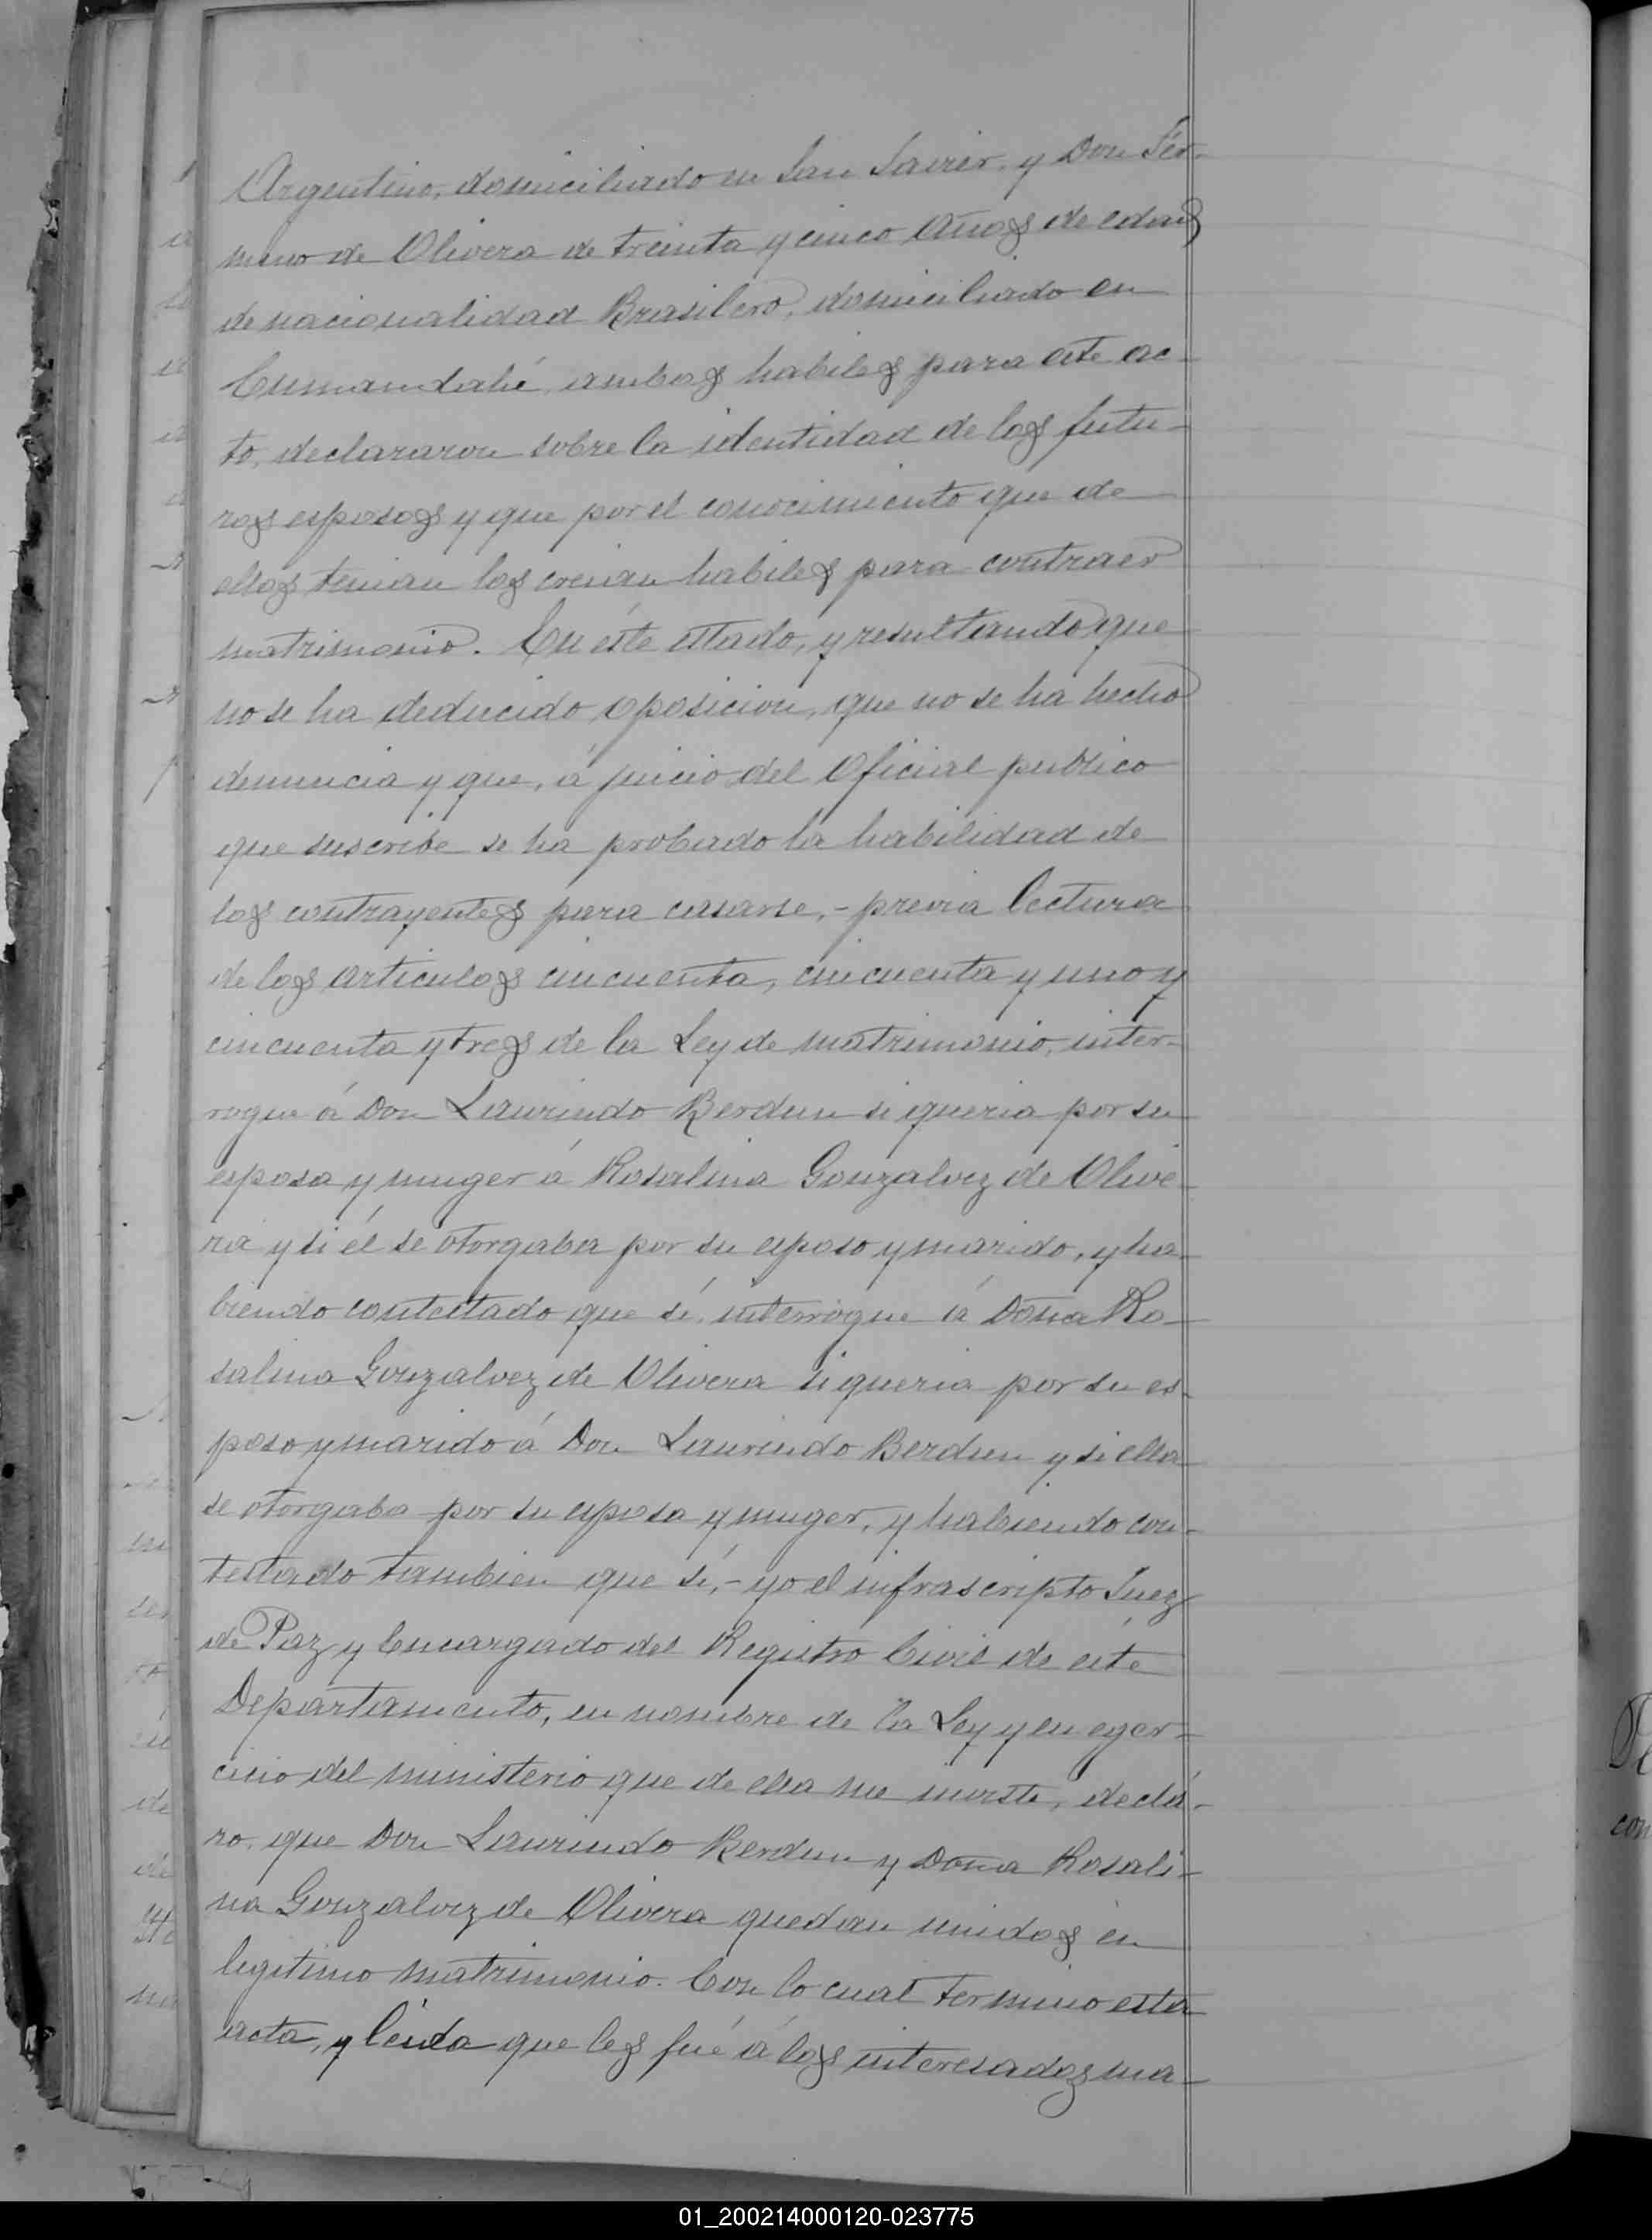 Argentino, domiciliado en San Javier, y Don Fer-
mino de Olivera de treinta y cinco años de edad
de nacionalidad Brasilero, domiciliado en
ambos habiles para este ac-
to, declararon sobre la identidad de los futu-
ros esposos y que por el conocimiento que de
ellos tenian los creian habiles para contraer
matrimonio. En éste estado, y resultando que
no se ha deducido oposicion, que no se ha hecho
denuncia y que, á juicio del Oficial publico
que suscribe se ha probado la habilidad de
los contrayentes para casarse, - previa lectura
de los articulos cincuenta, cincuenta y uno y
cincuenta y tres de la Ley de matrimonio, inter-
rogue á Don Laurindo Berdun si queria por su
esposa y muger á Rosalina Gonzalvez de Olive-
ra y si él se otorgaba por su esposo y marido, y ha-
biendo contestado que sí, interrogue á Doña Ro-
salina Gonzalvez de Olivera si queria por su es-
poso y marido á Don Laurindo Berdun y si ella
se otorgaba por su esposa y muger, y habiendo con-
testado tambien que sí, - yo el infrascripto Juez
de Paz y Encargado del Registro Civil de éste
Departamento, en nombre de la Ley y en eger-
cicio del ministerio que de ella me inviste, declá-
ro, que Don Laurindo Berdun y Doña Rosali-
na Gonzalvez de Olivera quedan unidos en
legitimo matrimonio. Con lo cual termino esta
acta, y leida que les fué á los interesados ma-
01_200214000120-023775